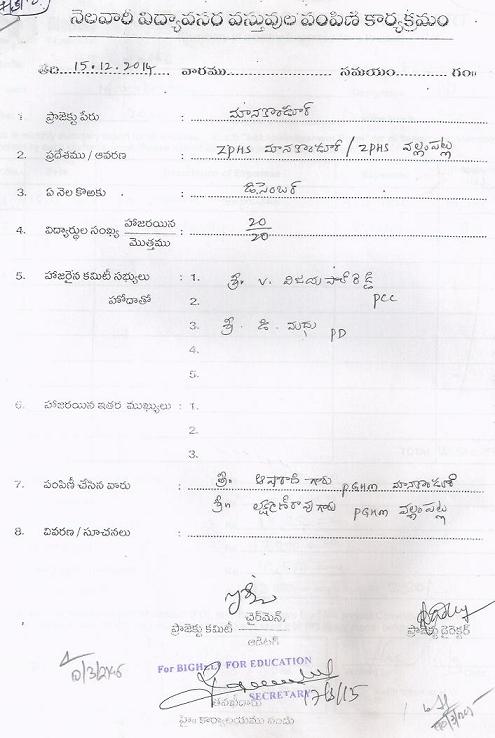 నెలవారీ విద్యావసర వస్తువుల పంపిణి కార్యక్రమం
తేది 15.12.2014 వారము సమయం గం॥
1. ప్రాజెక్టు పేరు : మానకొండూర్
2. ప్రదేశము / ఆవరణ : ZPHS మానకొండూర్ / ZPHS వల్లంపట్ల
3. ఏ నెల కొఱకు : డిసెంబర్
4. విద్యార్థుల సంఖ్య హాజరయిన / మొత్తము : 20 / 20
5. హాజరైన కమిటీ సభ్యులు : 1. శ్రీ. V. విజయపాల్ రెడ్డి
హోదాతో 2. PCC
3. శ్రీ. డి. మధు PD
4.
5.
6. హాజరయిన ఇతర ముఖ్యులు : 1.
2.
3.
7. పంపిణీ చేసిన వారు : శ్రీ గారు PGHM మానకొండూర్
శ్రీ లక్ష్మణ్ రావు గారు PGHM వల్లంపట్ల
8. వివరణ / సూచనలు :
చైర్‌మెన్,
ప్రాజెక్టు కమిటీ ప్రాజెక్టు డైరెక్టర్
ఆడిటర్
For BIGH FOR EDUCATION
SECRETARY 17/3/15
హై॥ కార్యాలయము నందు